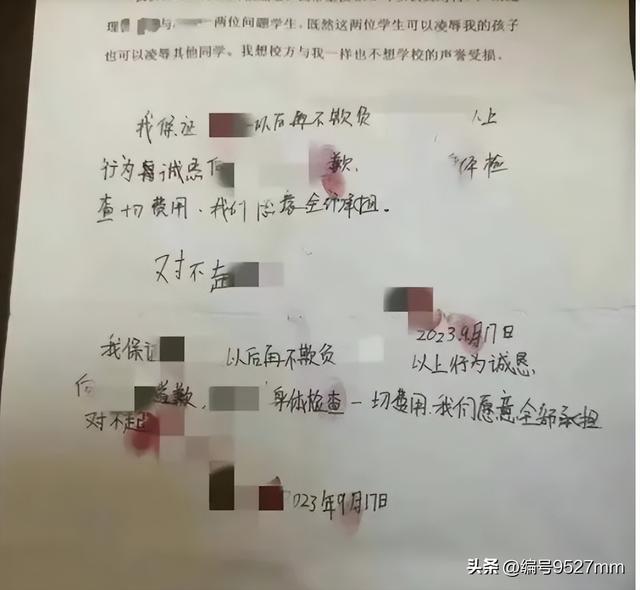 理 与 一两位问题学生，既然这两位学生可以凌辱我的孩子
也可以凌辱其他同学。我想校方与我一样也不想学校的声誉受损。
我保证 以后再不欺负 以上
行为 诚恳向 歉， 体检
查 切费用、我们愿意全部承担。
对不起
2023.9月17日
我保证 以后再不欺负 以上行为诚恳
向 道歉， 身体检查一切费用.我们愿意全部承担
对不起
2023年9月17日
头条 @编号9527mm